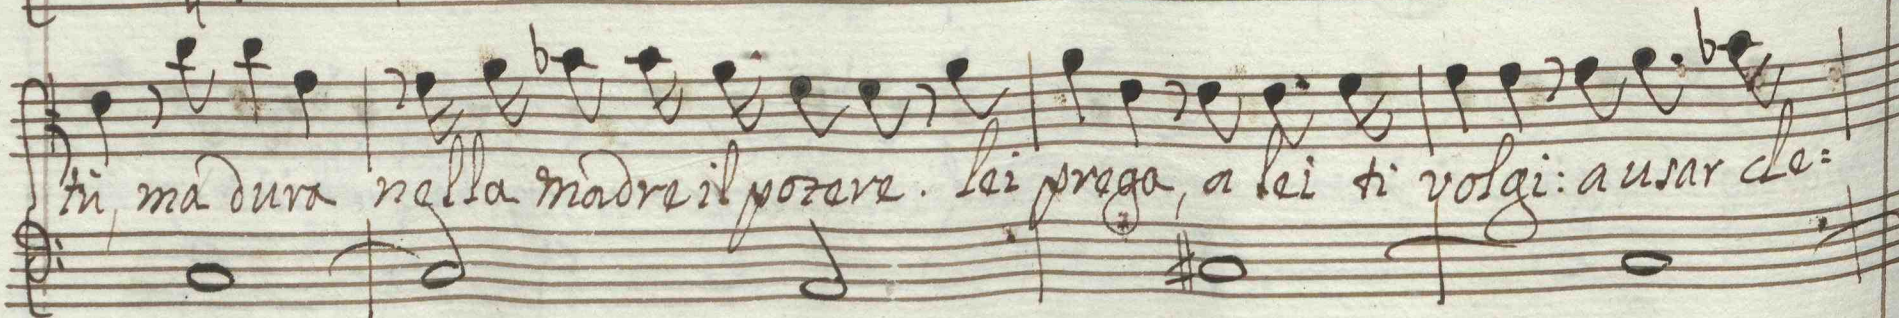 tù, ma dura nella madre il potere. lei prega, a lei ti volgi: a usar cle=